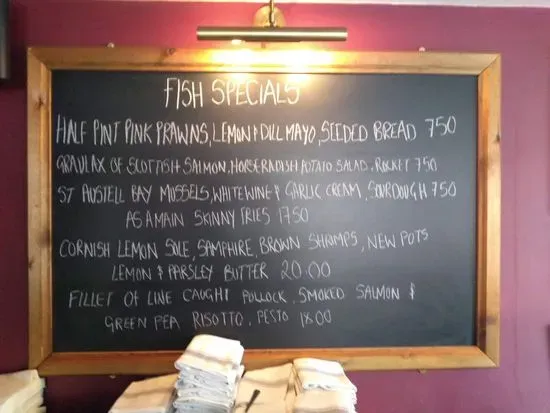 FISH SPECIALS
HALF PINT PINK PRAWNS, LEMON & DILL MAYO, SEEDED BREAD 750
GRAVLAX OF SCOTTISH SALMON, HORSERADISH POTATO SALAD, ROCKET 750
ST AUSTELL BAY MUSSELS, WHITE WINE & GARLIC CREAM, SOURDOUGH 750
AS A MAIN SKINNY FRIES 1750
CORNISH LEMON SOLE, SAMPHIRE, BROWN SHRIMPS, NEW POTS
LEMON & PARSLEY BUTTER 20.00
FILLET OF LINE CAUGHT POLLOCK, SMOKED SALMON &
GREEN PEA RISOTTO, PESTO 18.00